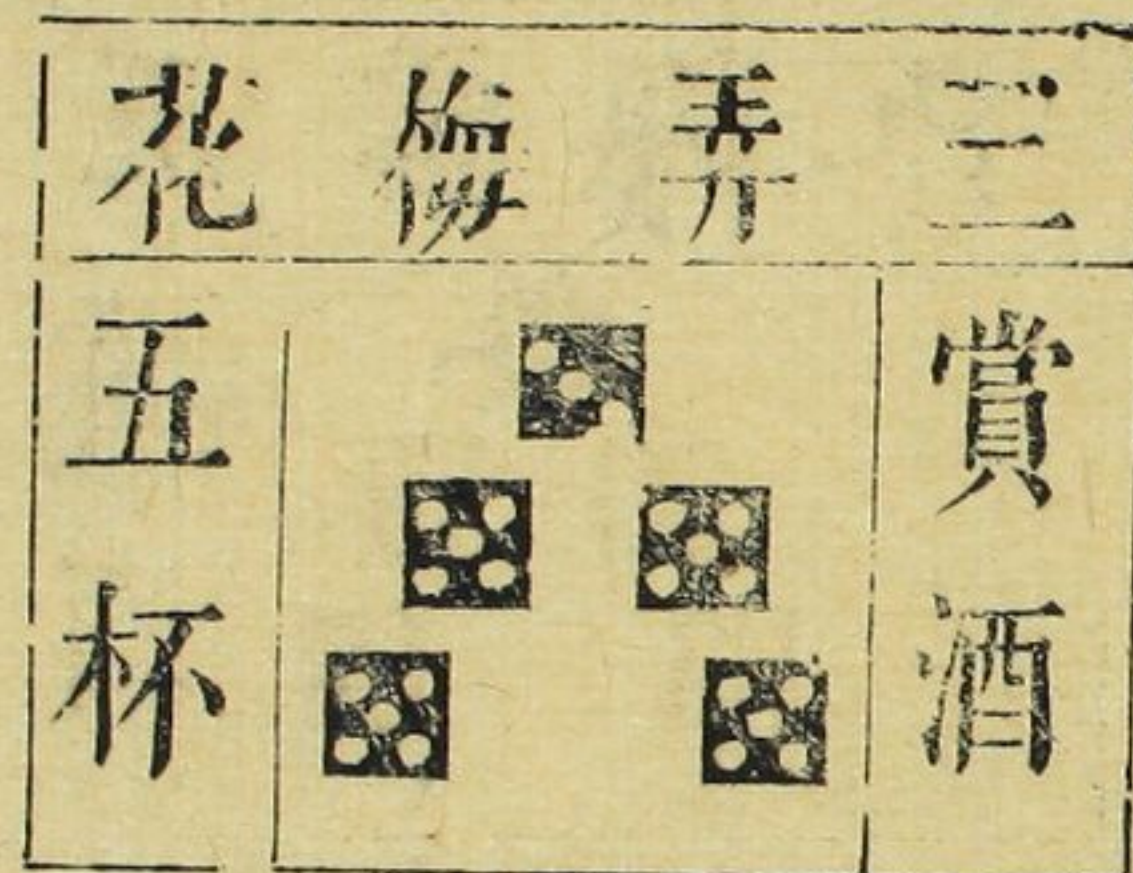 三弄梅花
賞酒
五杯